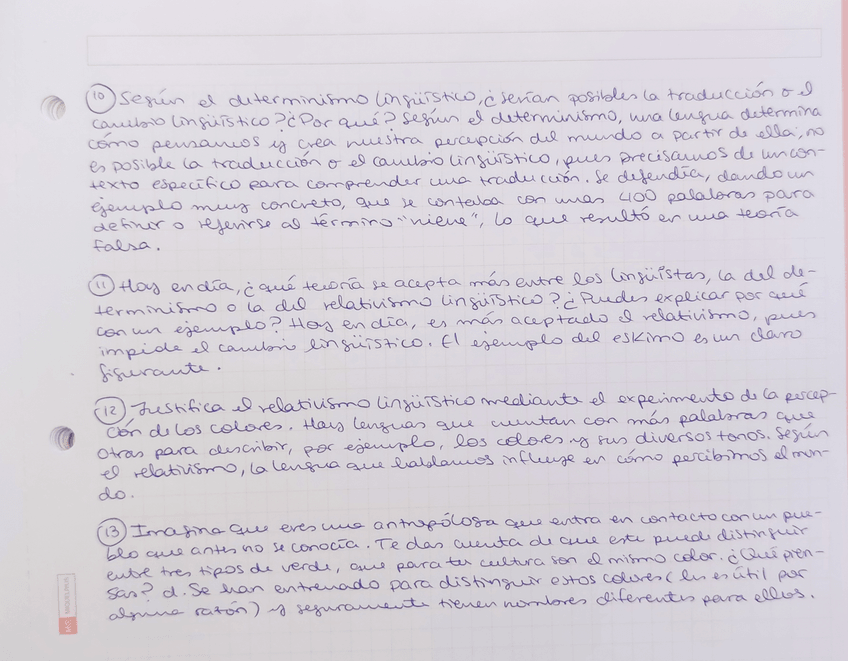 10 Según el determinismo lingüístico, ¿serían posibles la traducción o el
cambio lingüístico? ¿Por qué? Según el determinismo, una lengua determina
cómo pensamos y crea nuestra percepción del mundo a partir de ella; no
es posible la traducción o el cambio lingüístico, pues precisamos de un con-
texto específico para comprender una traducción. Se defendía, dando un
ejemplo muy concreto, que se contaba con unas 400 palabras para
definir o referirse al término "nieve", lo que resultó en una teoría
falsa.
11 Hoy en día, ¿qué teoría se acepta más entre los lingüistas, la del de-
terminismo o la del relativismo lingüístico? ¿Puedes explicar por qué
con un ejemplo? Hoy en día, es más aceptado el relativismo, pues
impide el cambio lingüístico. El ejemplo del eskimo es un claro
figurante.
12 Justifica el relativismo lingüístico mediante el experimento de la percep-
ción de los colores. Hay lenguas que cuentan con más palabras que
otras para describir, por ejemplo, los colores y sus diversos tonos. Según
el relativismo, la lengua que hablamos influye en cómo percibimos el mun-
do.
13 Imagina que eres una antropóloga que entra en contacto con un pue-
blo que antes no se conocía. Te das cuenta de que este puede distinguir
entre tres tipos de verde, que para tu cultura son el mismo color. ¿Qué pien-
sas? d. Se han entrenado para distinguir estos colores (les es útil por
alguna razón) y seguramente tienen nombres diferentes para ellos.